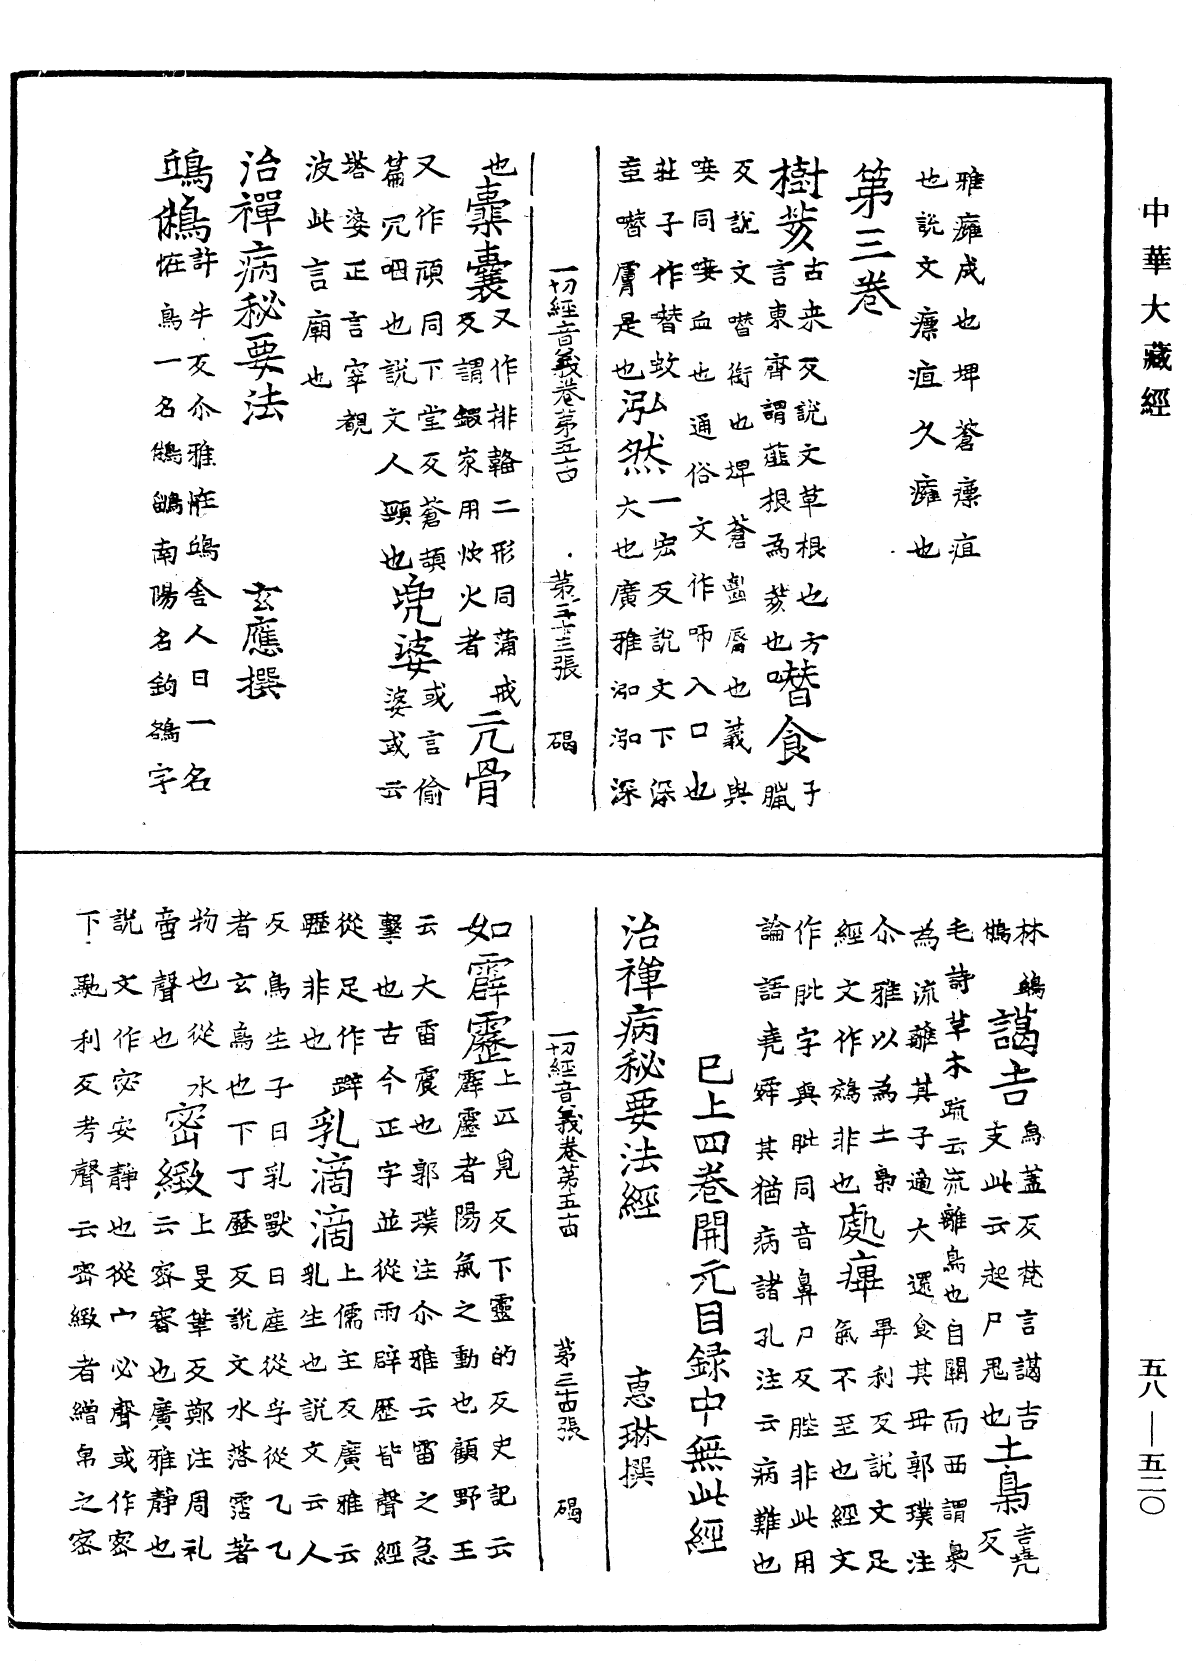 中華大藏經
雅癰成也埤蒼瘭疽
也說文瘭疽久癰也
第三卷
樹荄古來反說文草根也方
言東齊謂韮根為荄也噆食子臘
反說文噆銜也埤蒼齧脣也義與
唼同唼血也通俗文作咂入口也
莊子作噆蚊
噆膚是也泓然一宏反說文下深
大也廣雅泓泓深
一切經音義卷第五十四 第三十三張 碣
也橐囊又作排韛二形同蒲戒
反謂鍜家用炊火者元骨
又作頏同下堂反蒼頡
篇冗咽也說文人頸也兜婆或言偷
婆或云
塔婆正言窣覩
波此言廟也
治禪病秘要法 玄應撰
鴟鵂許牛反尒雅恠鴟舍人曰一名
恠鳥一名鵂鶹南陽名鉤鵅字
林鵂謁吉烏蓋反梵言謁吉
支此云起尸鬼也土梟吉堯反
毛詩草木䟽云流離鳥也自關而西謂梟
為流離其子適大還食其母郭璞注
尒雅以為土梟
經文作鵁非也處痺畀利反說文足
氣不至也經文
作肶字與肶同音鼻尸反䏶非此用
論語堯舜其猶病諸孔注云病難也
巳上四卷開元目録中無此經
治禪病秘要法經 惠琳撰
一切經音義卷第五十四 第三十四張 碣
如霹靂上匹覓反下靈的反史記云
霹靂者陽氣之動也顧野王
云大雷震也郭璞注尒雅云雷之急
擊也古今正字並從雨辟歷皆聲經
從足作躃
躔非也乳滴滴上儒主反廣雅云
乳生也說文云人
及鳥生子曰乳獸曰產從孚從乙乙
者玄鳥也下丁歷反說文水落霑著
物也從水
啻聲也密緻上旻筆反鄭注周礼
云密審也廣雅靜也
說文作宓安靜也從宀必聲或作密
下馳利反考聲云密緻者繒帛之密
五八—五二〇